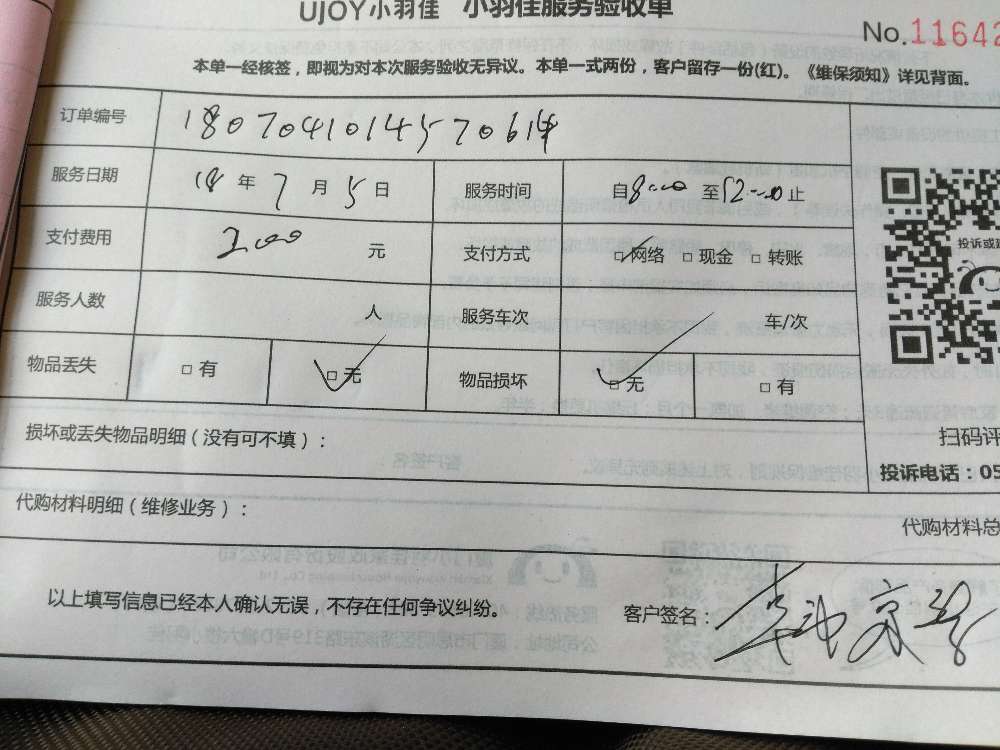 UJOY小羽佳 小羽佳服务验收单
No.11642
本单一经核签，即视为对本次服务验收无异议。本单一式两份，客户留存一份(红)。《维保须知》详见背面。
订单编号 180704101457061
服务日期 18 年 7 月 5 日 服务时间 自8:00 至12:00止
支付费用 200 元 支付方式 ☑网络 □ 现金 □ 转账
投诉或
服务人数 人 服务车次 车/次
物品丢失 □ 有 ☑无 物品损坏 ☑无 □ 有
损坏或丢失物品明细（没有可不填）：
扫码评
投诉电话：05
代购材料明细（维修业务）：
代购材料总
以上填写信息已经本人确认无误，不存在任何争议纠纷。 客户签名：